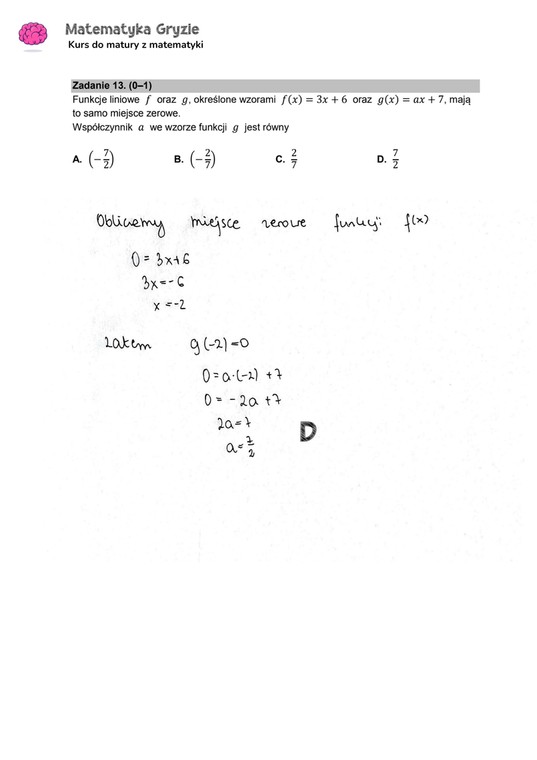 Matematyka Gryzie
Kurs do matury z matematyki
Zadanie 13. (0–1)
Funkcje liniowe f oraz g, określone wzorami f(x) = 3x + 6 oraz g(x) = ax + 7, mają
to samo miejsce zerowe.
Współczynnik a we wzorze funkcji g jest równy
A. (−7/2) B. (−2/7) C. 2/7 D. 7/2
Obliczmy miejsce zerowe funkcji f(x)
0 = 3x+6
3x = -6
x = -2
zatem g(-2)=0
0 = a·(-2) +7
0 = -2a +7
2a = 7
a = 7/2 D